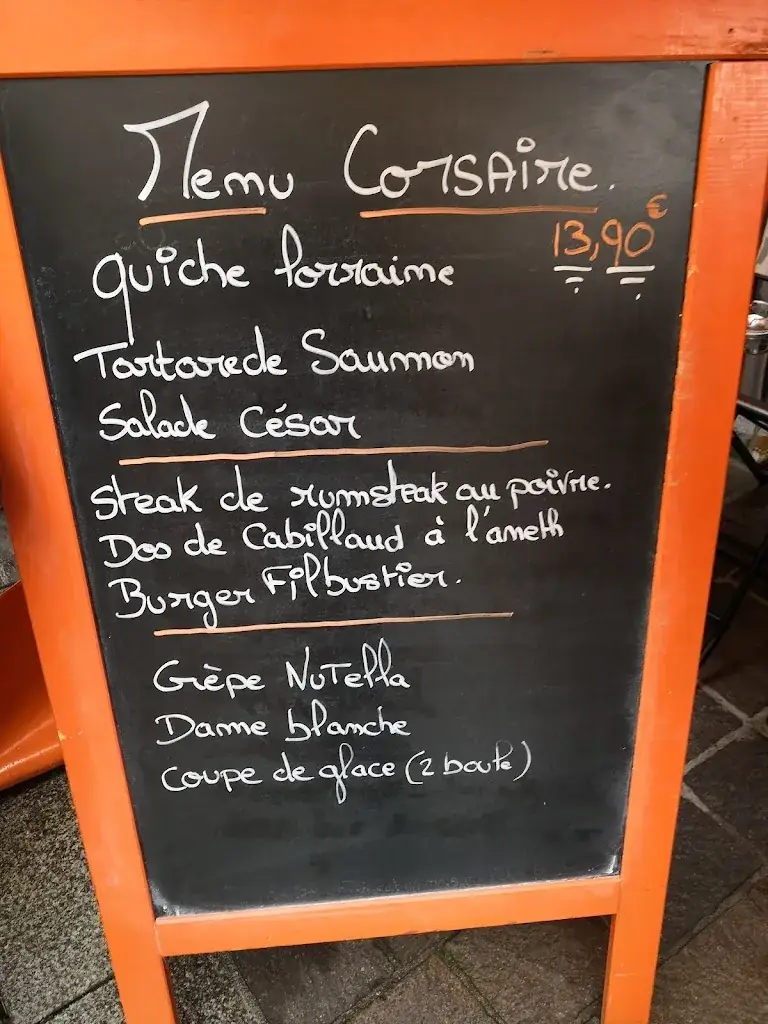 Menu Corsaire.
13,90 €
quiche lorraine
Tartare de Saumon
Salade César
Steak de rumsteak au poivre.
Dos de Cabillaud à l'aneth
Burger Filbustier.
Crèpe Nutella
Dame blanche
coupe de glace (2 boule)